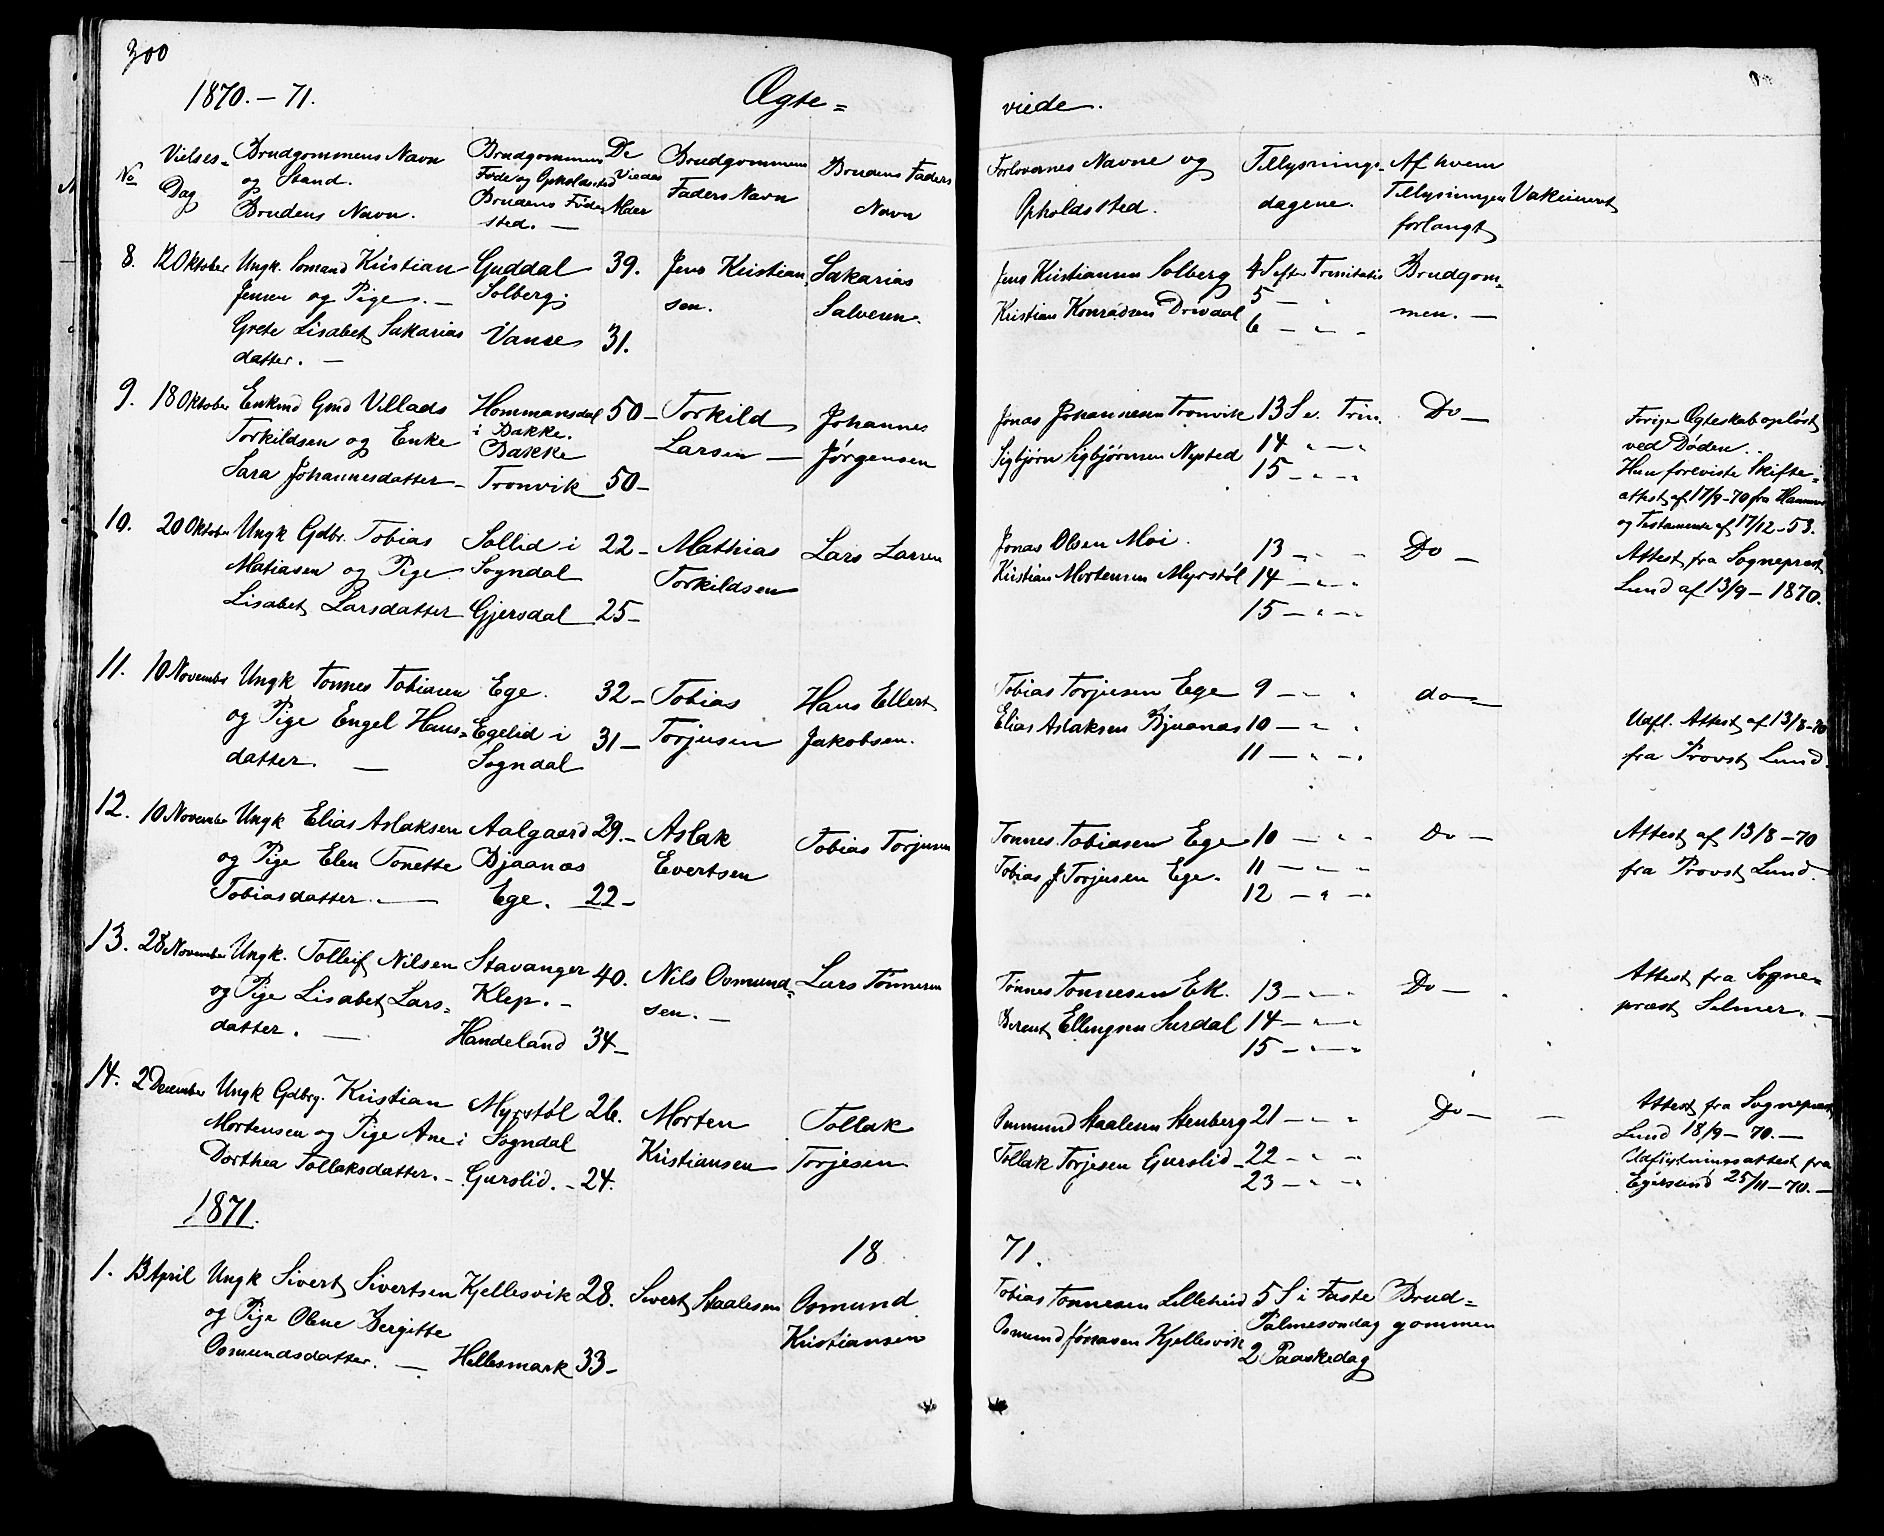 300
1870.-71.
Ægte=
viede.
No
Vielses-
Dag
Brudgommens Navn
og Stand.
Brudens Navn.
Brudgommens
Føde og Opholdssted
Brudens Føde
sted. —
De
Viedes
Alder
Brudgommens
Faders Navn
Brudens Faders
Navn
Forlovernes Navne og
Opholdssted.
Tillysnings-
dagene.
Af hvem
Tillysningen
forlangt
Vakcineret
8. 12 Oktober Ungk. Somand Kristian
Jensen og Pige. —
Grete Lisabet Sakarias
datter. —
Guddal
Solberg.
Vanse
39.
31.
Jens Kristian
sen.
Sakarias
Salvesen.
Jens Kristiansen Solberg
Kristian Konradsen Drivdal
4 S efter Trinitatis
5 — "
6 — " —
Brudgom=
men. —
9. 18 Oktober Enkmd Gmd Villads
Torkildsen og Enke
Sara Johannesdatter —
Hommansdal
i Bakke.
Bakke
Tronvik
50 —
50 —
Torkild
Larsen —
Johannes
Jørgensen
Jonas Johannesen Tronvik
Sigbjørn Sigbjørnsen Nysted
13 S e. Trin.
14 " — "
15 — " — "
Do —
Forige Ægteskab opløst
ved Døden. —
Hun foreviste Skifte=
attest af 17/9-70 fra
og Testamente af 17/12-53.
10. 20 Oktober Ungk Gdbr. Tobias
Matiasen og Pige
Lisabet Larsdatter
Sollid i
Sogndal
Gjersdal
22 —
25 —
Mathias
Torkildsen
Lars Larsen
Jonas Olsen Moi.
Kristian Mortensen Myrstøl
13 — " —
14 — " — "
15 — " — "
Do —
Attest fra Sogneprest
Lund af 13/9 — 1870.
11. 10 November Ungk Tønnes Tobiasen
og Pige Engel Hans=
datter. —
Ege.
Egelid i
Sogndal
32 —
31 —
Tobias
Torjusen
Hans Ellert
Jakobsen.
Tobias Torjusen Ege
Elias Aslaksen Bjuanæs
9 — " "
10 — " "
11 — " — "
do —
Udfl. Attest af 13/8-70
fra Provst Lund.
12. 10 November Ungk Elias Aslaksen
og Pige Elen Tonette
Tobiasdatter. —
Aalgaard
Bjaanæs
Ege.
29. —
22 —
Aslak
Evertsen
Tobias Torjusen
Tønnes Tobiasen Ege
Tobias J Torjusen Ege.
10 — " "
11 — " — "
12 — " — "
Do —
Attest af 13/8 — 70
fra Provst Lund.
13. 28 November Ungk. Tolleif Nilsen
og Pige Lisabet Lars=
datter. —
Stavanger
Klep. —
Handeland
40.
34 —
Nils Osmund=
sen. —
Lars Tønnesen
Tønnes Tonnesen Ek.
Berent Ellingsen Surdal
13 — " — "
14 — " — "
15 — " — "
Do —
Attest fra Sogne=
præst Selmer. —
14. 2 December Ungk Gdbrg. Kristian
Mortensen og Pige Ane
Dorthea Tollaksdatter. —
Myrstøl
i Sogndal
Gurslid. —
26.
24.
Morten
Kristiansen
Tollak
Torjesen
Osmund Staalesen Stenberg
Tollak Torjesen Gurslid
21 — " "
22 — " — "
23 — " — "
Do — —
Attest fra Sogneprest
Lund 18/9 — 70. —
Udflytningsattest fra
Egersund 25/11 — 70. —
1871.
18
71.
1. 13 April Ungk Sivert Sivertsen
og Pige Olene Bergitte
Osmundsdatter. —
Kjellesvik
Hellesmark
28.
33 —
Sivert Staalesen
Osmund
Kristiansen
Tobias Tonnesen Lilleheid
Osmund Jonasen Kjellesvik
5 S i Faste
Palmesøndag
2 Paaskedag
Brud=
gommen